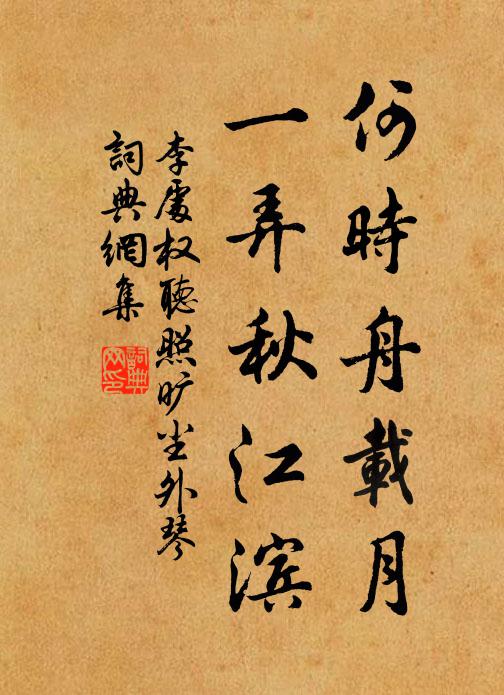 何時舟載月
一弄秋江滨
李處权聽照旷尘外琴
詞典網集
詞典网印